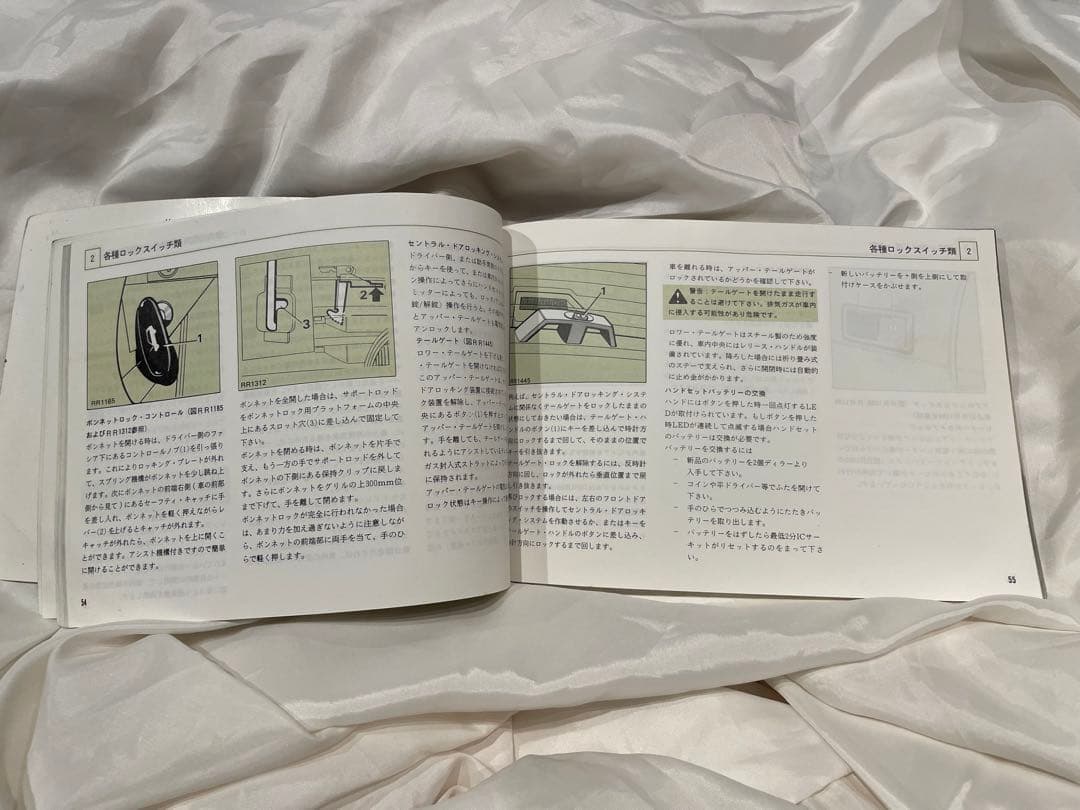 2 各種ロックスイッチ類
1
RR1165
ボンネットロック・コントロール(図RR1165
およびRR1312参照)
ボンネットを開ける時は、ドライバー側のファ
シア下にあるコントロールノブ(1)を引っ張り
ます。これによりロッキング・プレートが外れ
て、スプリング機構がボンネットを少し跳ね上
げます。次にボンネットの前端右側(車の前部
側から見て)にあるセーフティ・キャッチに手
を差し入れ、ボンネットを軽く押えながらレ
バー(2)を上げるとキャッチが外れます。
キャッチが外れたら、ボンネットを上に開くこ
とができます。アシスト機構付きですので簡単
に開けることができます。
2
3
RR1312
ボンネットを全開した場合は、サポートロッド
をボンネットロック用プラットフォームの中央
上にあるスロット穴(3)に差し込んで固定して
下さい。
ボンネットを閉める時は、ボンネットを片手で
支え、もう一方の手でサポートロッドを外して
ボンネットの下側にある保持クリップに戻しま
す。さらにボンネットをグリルの上300mm位
まで下げて、手を離して閉めます。
ボンネットロックが完全に行われなかった場合
は、あまり力を加え過ぎないように注意しなが
ら、ボンネットの前端部に両手を当て、手のひ
らで軽く押します。
セントラル・ドアロッキング・シス
ドライバー側、または助手席側の
からキーを使って、または車内の
ン操作によってさらにハンドセット
ミッターによっても、ロック/
錠/解錠)操作を行うと、その他の
とアッパー・テールゲートも
アンロックします。
テールゲート(図RR1445)
ロワー・テールゲートを下げる
テールゲートを開けなければ
このアッパー・テールゲートは、
ドアロッキング装置に接続
タ装置を解除し、アッパー・テー
央にあるボタン(1)を押すと
アッパー・テールゲートが開
す。手を離しても、テールゲート
れるようにアシストしている
ガス封入式ストラットによって
に保持されます。
アッパー・テールゲートの
ロック状態はキー操作によって
54
各種ロックスイッチ類 2
1
RR1445
えば、セントラル・ドアロッキング・システ
に関係なくテールゲートをロックしたままの
状態しておきたい場合は、テールゲート・ハ
ンドルのボタン(1)にキーを差し込んで時計方
向にロックするまで回して、そのままの位置で
キーを引き抜きます。
テールゲート・ロックを解除するには、反時計
方向に回し、ロックが外れたら垂直位置まで戻し
引き抜きます。
びロックする場合には、左右のフロントドア
スイッチを操作してセントラル・ドアロッキ
ング・システムを作動させるか、またはキーを
テールゲート・ハンドルのボタンに差し込み、
時計方向にロックするまで回します。
車を離れる時は、アッパー・テールゲートが
ロックされているかどうかを確認して下さい。
警告:テールゲートを開けたまま走行す
ることは避けて下さい。排気ガスが車内
に侵入する可能性があり危険です。
ロワー・テールゲートはスチール製のため強度
に優れ、車内中央にはリリース・ハンドルが装
備されています。降ろした場合には折り畳み式
のステーで支えられ、さらに開閉時には自動的
に止め金がかかります。
ハンドセットバッテリーの交換
ハンドにはボタンを押した時一回点灯するLE
Dが取付けられています。もしボタンを押した
時LEDが連続して点滅する場合ハンドセット
のバッテリーは交換が必要です。
バッテリーを交換するには
− 新品のバッテリーを2個ディラーより
入手して下さい。
− コインや平ドライバー等でふたを開けて
下さい。
− 手のひらでつつみ込むようにたたきバッ
テリーを取り出します。
− バッテリーをはずしたら最低2分ICサー
キットがリセットするのをまって下さ
い。
− 新しいバッテリーを+側を上側にして取
付けケースをかぶせます。
55